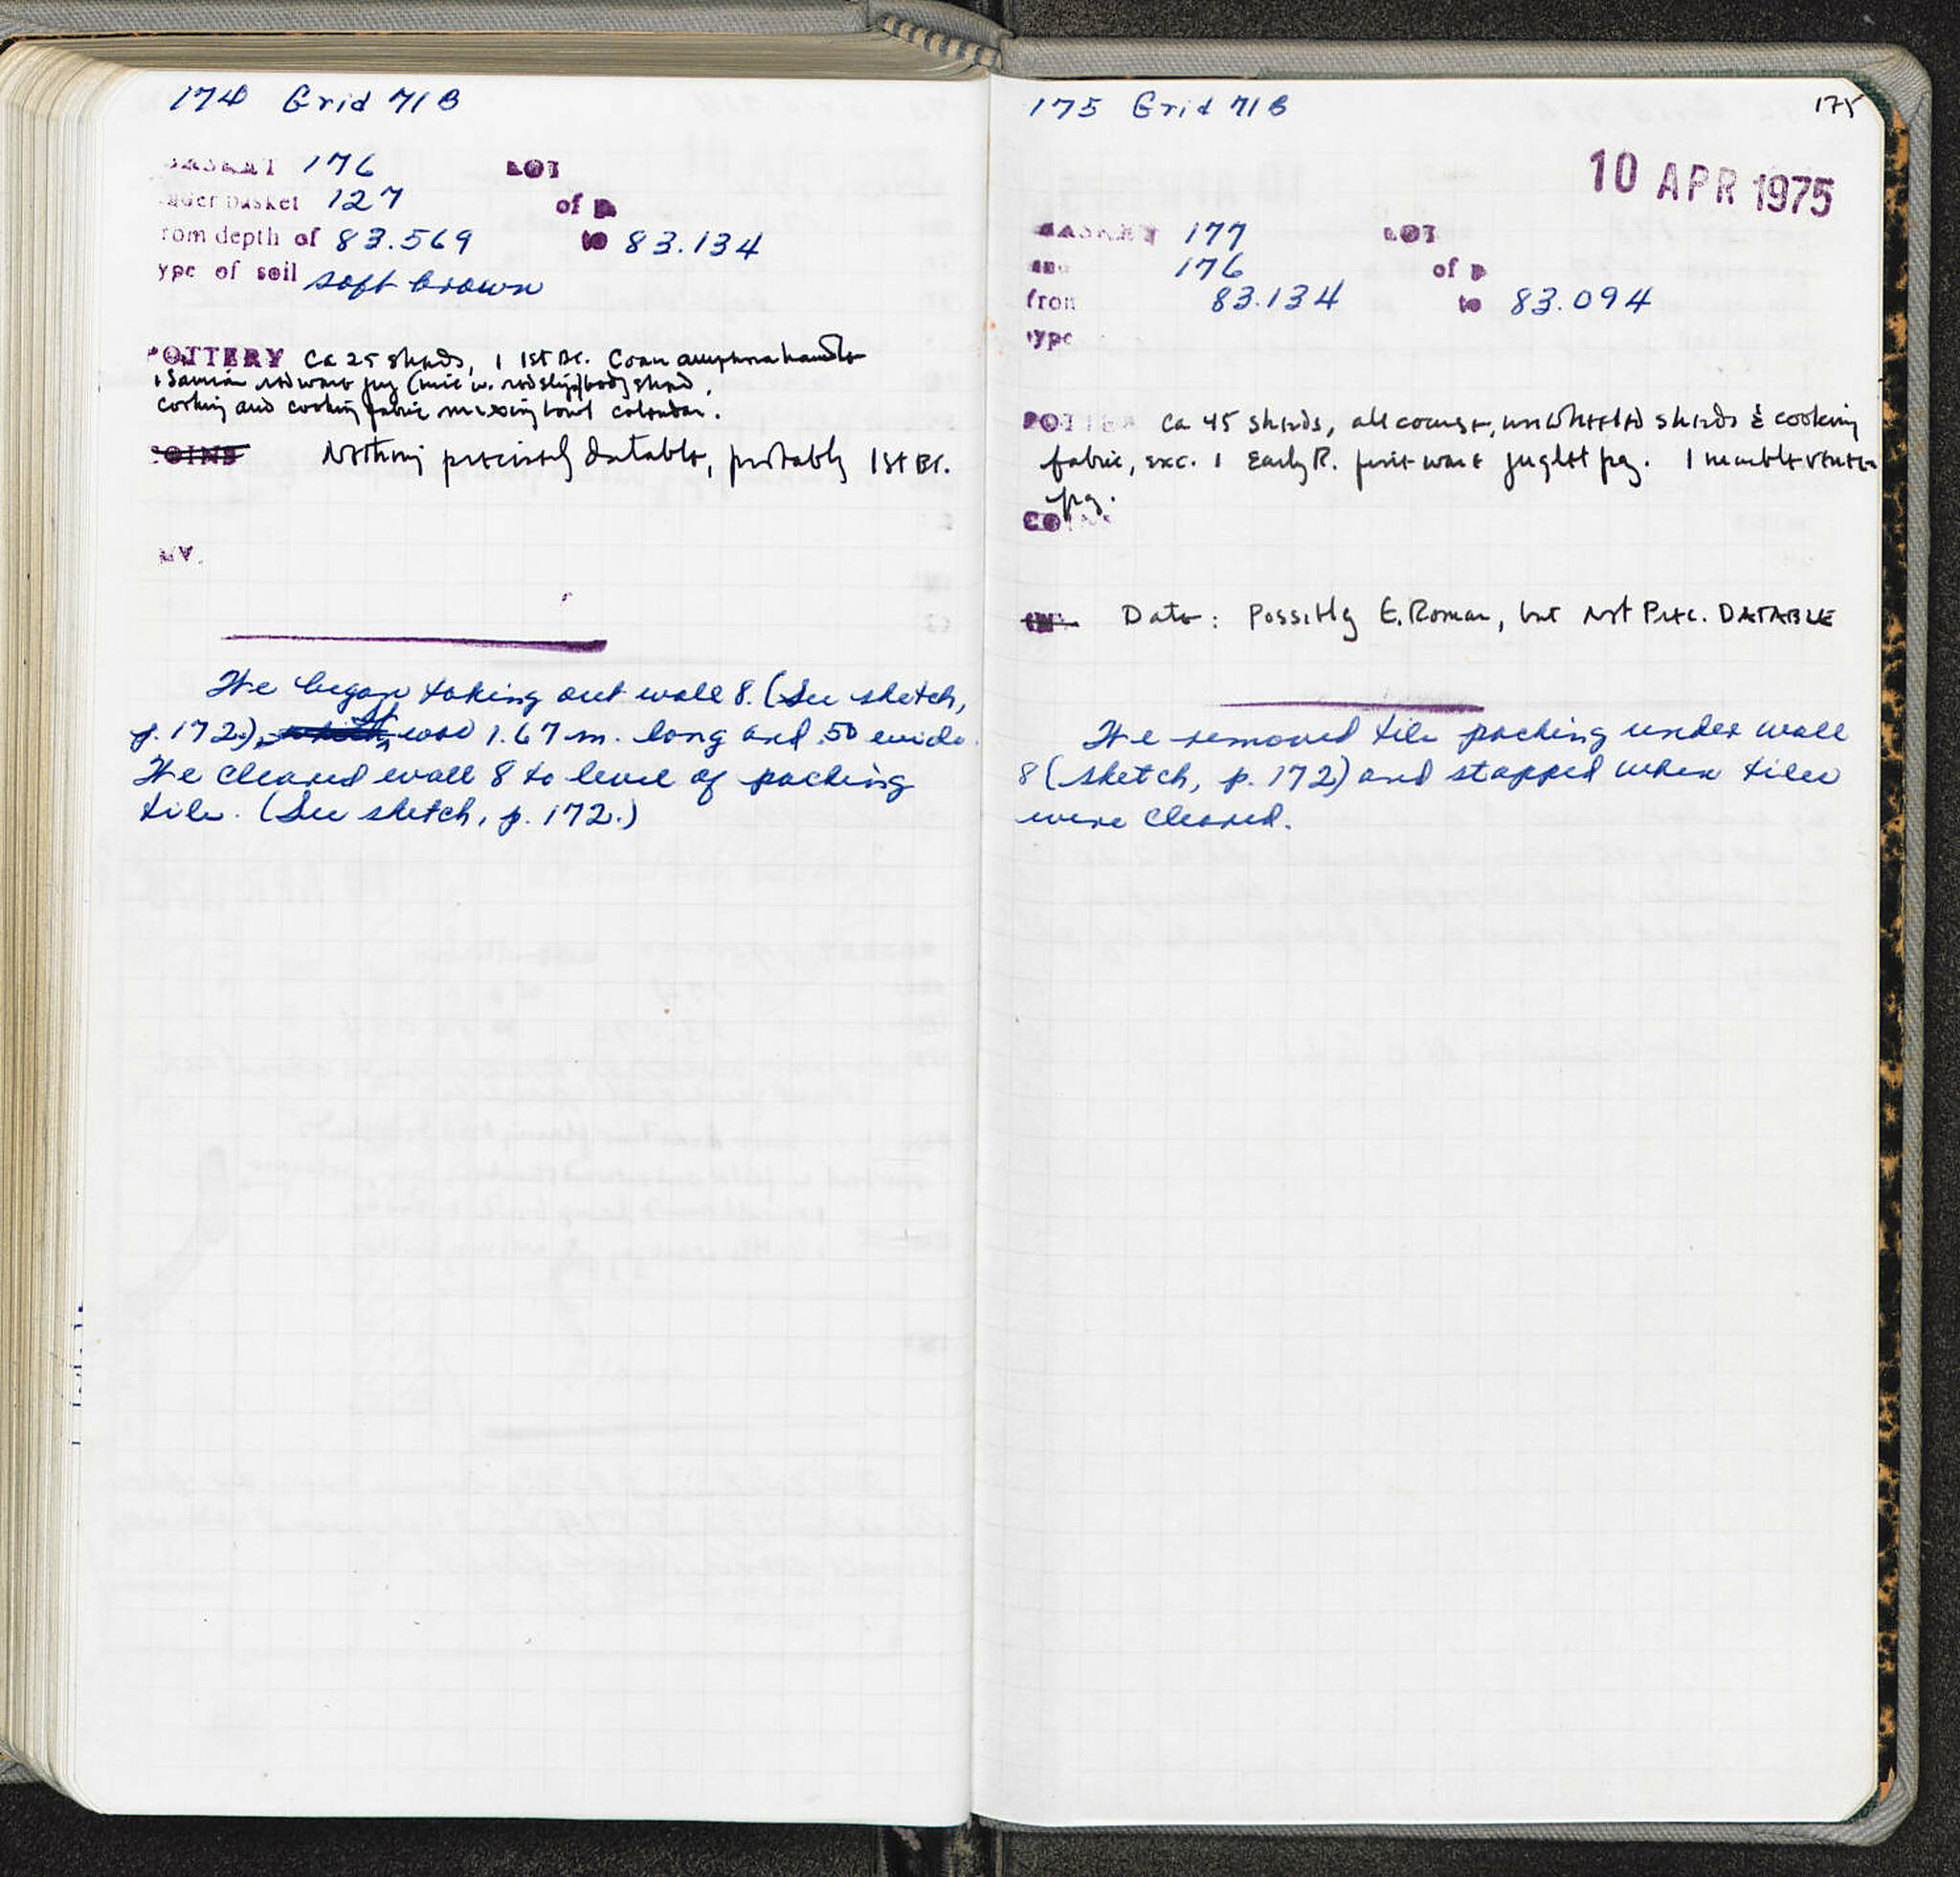 174 Grid 71B
BASKET 176 LOT
under basket 127 of p
from depth of 83.569 to 83.134
type of soil soft brown
POTTERY Ca 25 sherds, 1 1st BC. Coan amphora handle
1 Samian red ware frg (mic w. red slip) body sherd,
cooking and cooking fabric mixing bowl colander.
COINS Nothing precisely datable, probably 1st BC.
INV.
We began taking out wall 8. (See sketch,
p. 172). It was 1.67 m. long and .50 wide.
We cleared wall 8 to level of packing
tile. (See sketch, p. 172.)
175 Grid 71B 175
10 APR 1975
BASKET 177 LOT
176 of p
from 83.134 to 83.094
type
POTTERY Ca 45 sherds, all coarse, unwheeled sherds & cooking
fabric, exc. 1 Early R. fine ware juglet frg. 1 marble veneer
frg.
COINS
Date: Possibly E. Roman, but not Prec. DATABLE
We removed tile packing under wall
8 (sketch, p. 172) and stopped when tiles
were cleared.